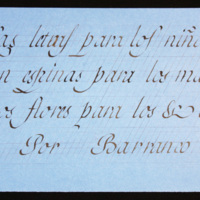 as letras para los niñ
n espinas para los ma
s flores para los
Por Barranco